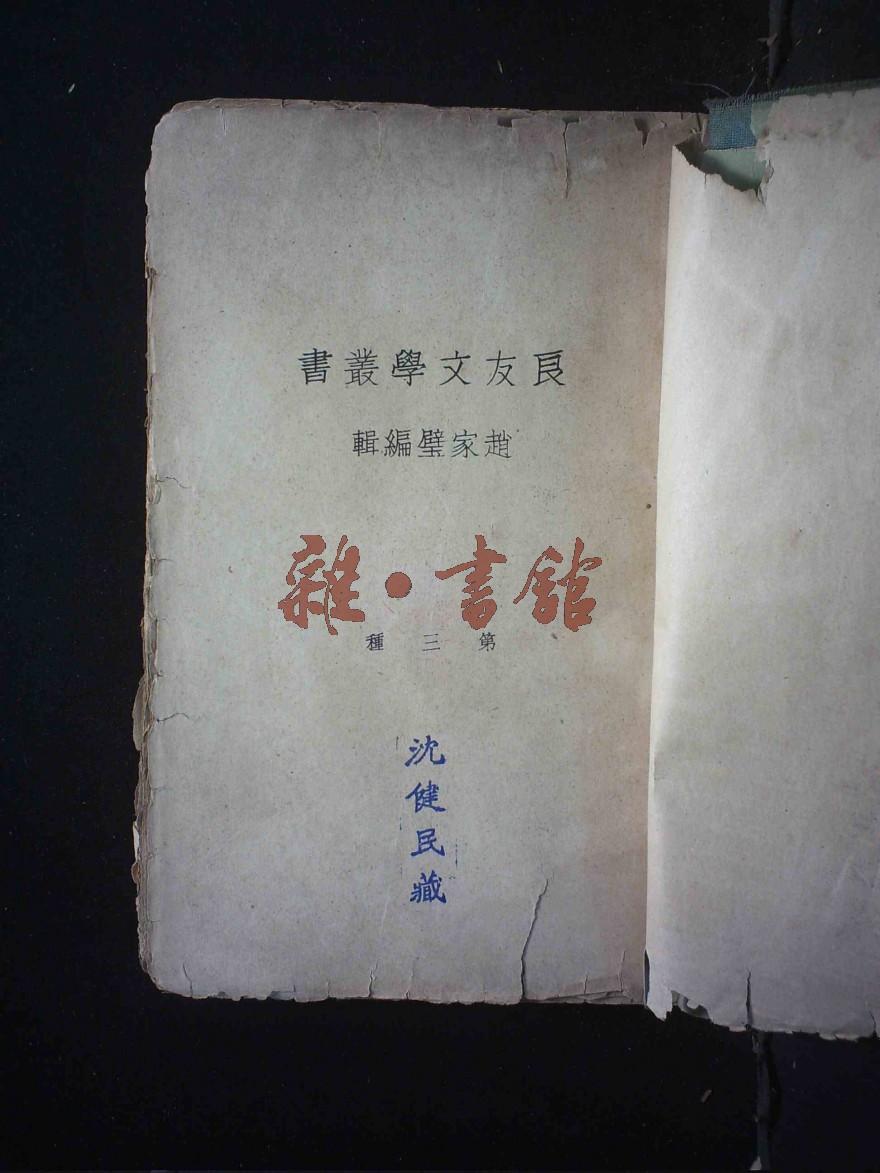 良友文學叢書
趙家璧編輯
雜·書館
第三種
沈健民藏